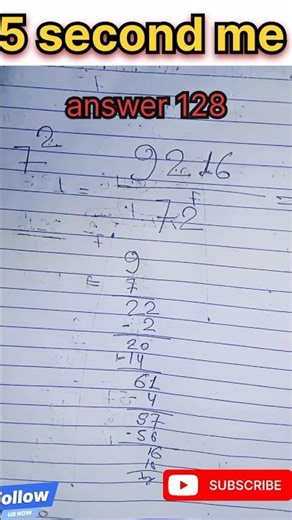 5 second me
answer 128
7² 9216
72
9
= 7
22
- 2
20
-14
61
- 4
57
-56
16
16
Follow
US NOW
SUBSCRIBE